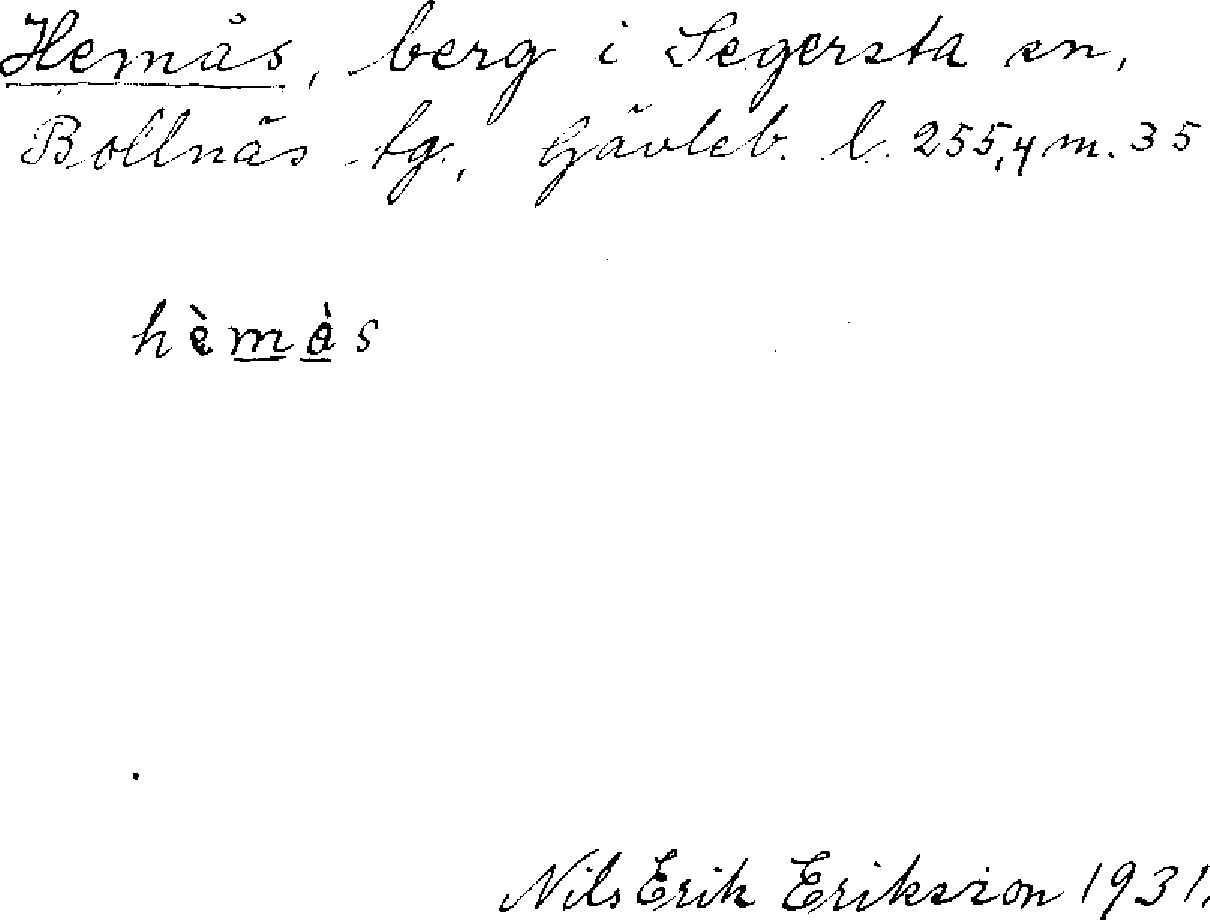 Hemås, berg i Segersta sn,
Bollnäs tg., Gävleb. l. 255,4 m. 35
hèmås
Nils Erik Eriksson 1931.